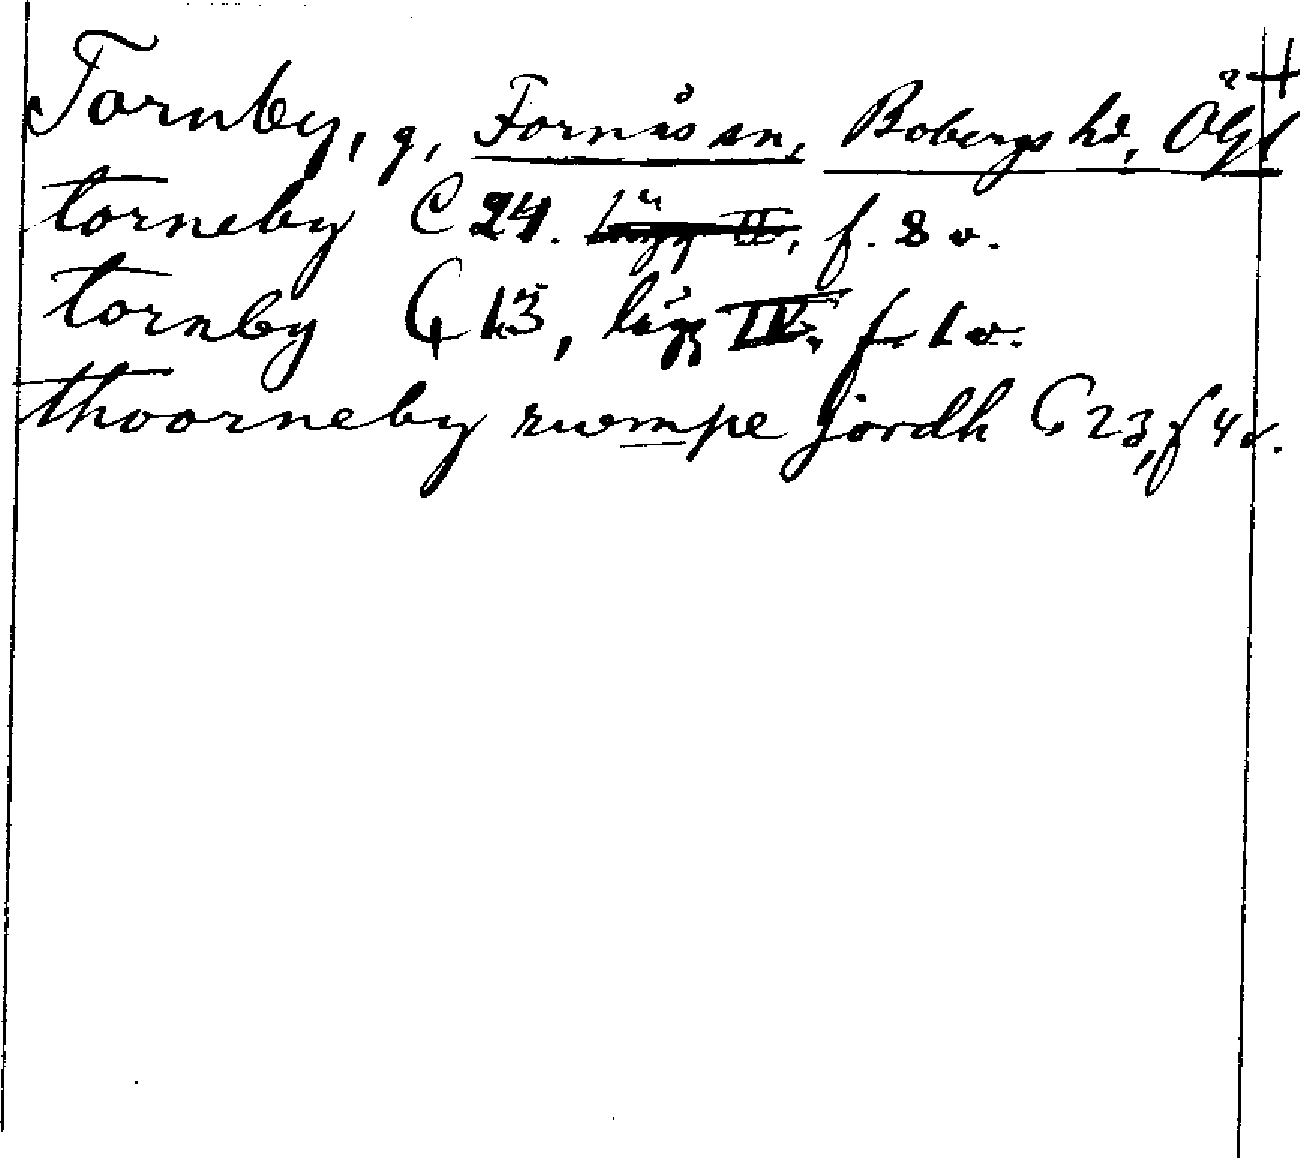 Tornby, g, Fornåsa sn, Bobergs hd, Ögl
torneby C 24. lägg II, f. 8 v.
tornby C 13, lägg IV. f. 1 v.
thoorneby rwmpe jordh C 23, f 4 v.